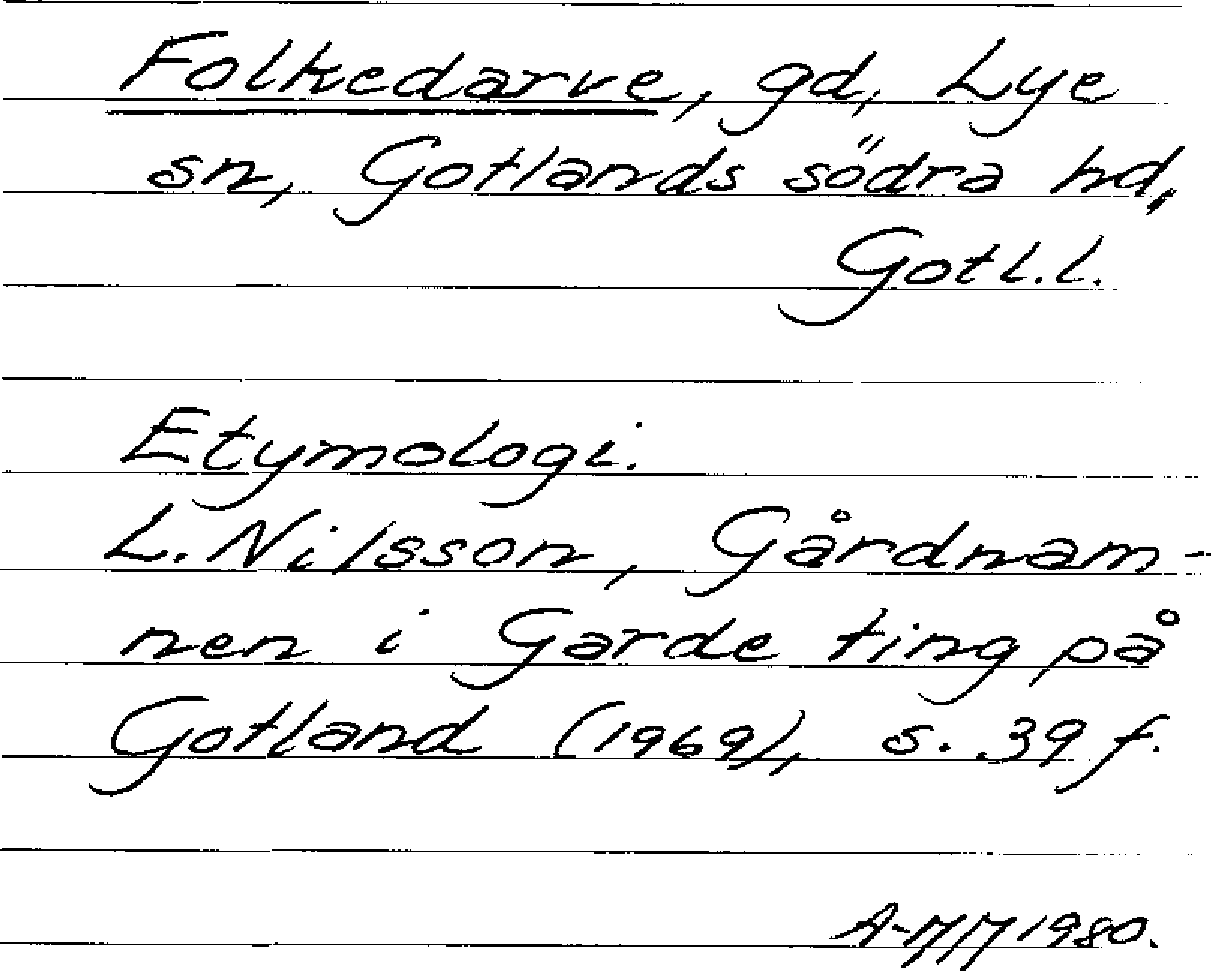 Folkedarve, gd, Lye
sn, Gotlands södra hd,
Gotl.l.
Etymologi.
L. Nilsson, Gårdnam-
nen i Garde ting på
Gotland (1969), s. 39 f.
1980.